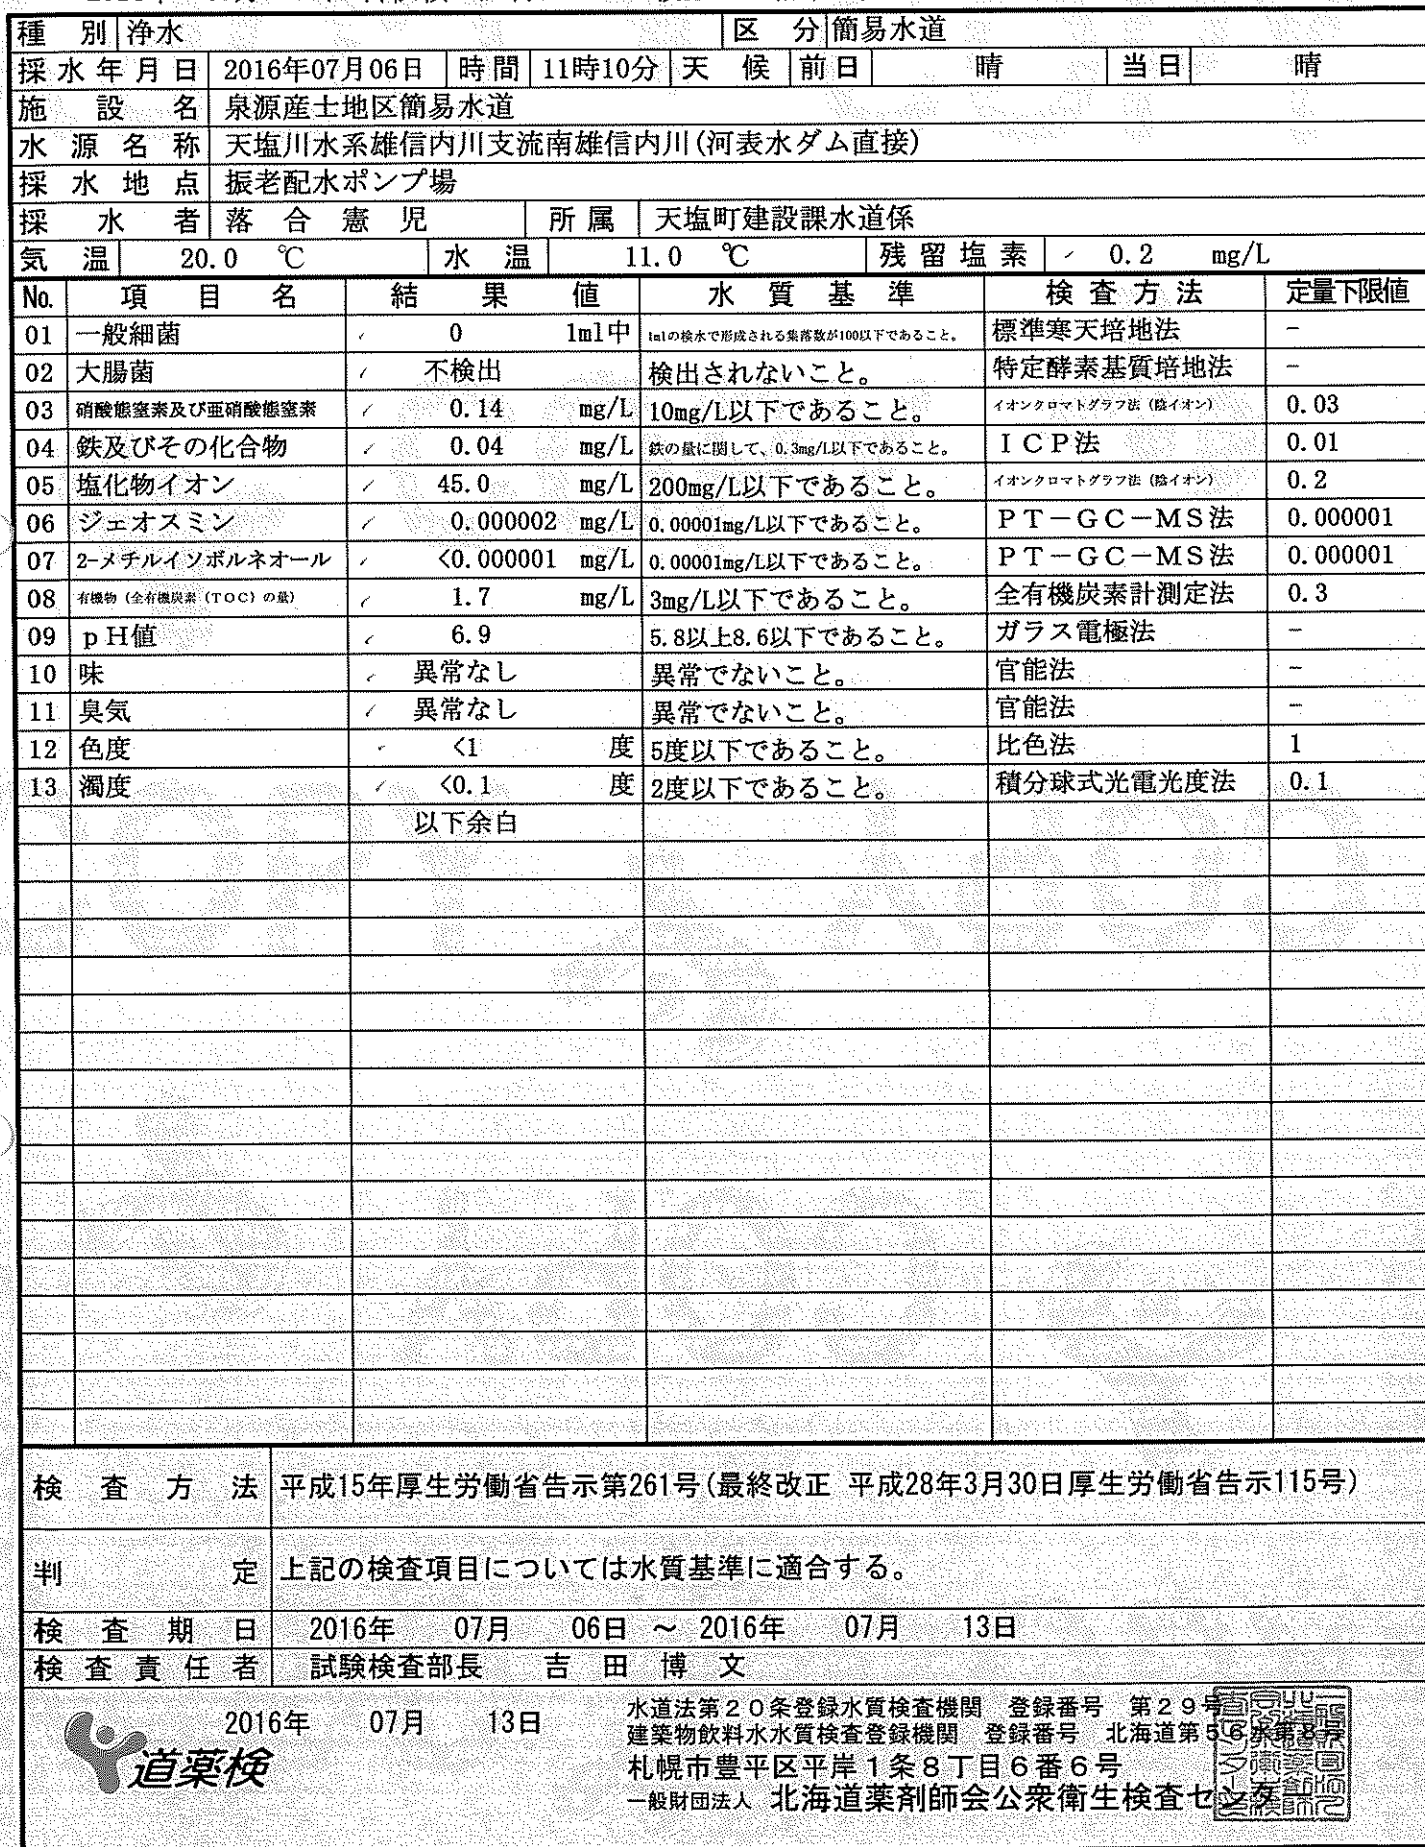 種 別 浄水 区 分 簡易水道
採水年月日 2016年07月06日 時間 11時10分 天 候 前日 晴 当日 晴
施 設 名 泉源産士地区簡易水道
水 源 名 称 天塩川水系雄信内川支流南雄信内川(河表水ダム直接)
採 水 地 点 振老配水ポンプ場
採 水 者 落 合 憲 児 所属 天塩町建設課水道係
気 温 20.0 ℃ 水 温 11.0 ℃ 残留塩素 0.2 mg/L
No. 項 目 名 結 果 値 水 質 基 準 検査方法 定量下限値
01 一般細菌 0 1ml中 1mlの検水で形成される集落数が100以下であること。 標準寒天培地法 -
02 大腸菌 不検出 検出されないこと。 特定酵素基質培地法 -
03 硝酸態窒素及び亜硝酸態窒素 0.14 mg/L 10mg/L以下であること。 イオンクロマトグラフ法（陰イオン） 0.03
04 鉄及びその化合物 0.04 mg/L 鉄の量に関して、0.3mg/L以下であること。 ＩＣＰ法 0.01
05 塩化物イオン 45.0 mg/L 200mg/L以下であること。 イオンクロマトグラフ法（陰イオン） 0.2
06 ジェオスミン 0.000002 mg/L 0.00001mg/L以下であること。 ＰＴ－ＧＣ－ＭＳ法 0.000001
07 2-メチルイソボルネオール <0.000001 mg/L 0.00001mg/L以下であること。 ＰＴ－ＧＣ－ＭＳ法 0.000001
08 有機物（全有機炭素（ＴＯＣ）の量） 1.7 mg/L 3mg/L以下であること。 全有機炭素計測定法 0.3
09 ｐＨ値 6.9 5.8以上8.6以下であること。 ガラス電極法 -
10 味 異常なし 異常でないこと。 官能法 -
11 臭気 異常なし 異常でないこと。 官能法 -
12 色度 <1 度 5度以下であること。 比色法 1
13 濁度 <0.1 度 2度以下であること。 積分球式光電光度法 0.1
以下余白
検 査 方 法 平成15年厚生労働省告示第261号(最終改正 平成28年3月30日厚生労働省告示115号)
判 定 上記の検査項目については水質基準に適合する。
検 査 期 日 2016年 07月 06日 ～ 2016年 07月 13日
検 査 責 任 者 試験検査部長 吉 田 博 文
水道法第２０条登録水質検査機関 登録番号 第２９号
2016年 07月 13日
建築物飲料水水質検査登録機関 登録番号 北海道第５６水第８号
道薬検
札幌市豊平区平岸１条８丁目６番６号
一般財団法人 北海道薬剤師会公衆衛生検査センター